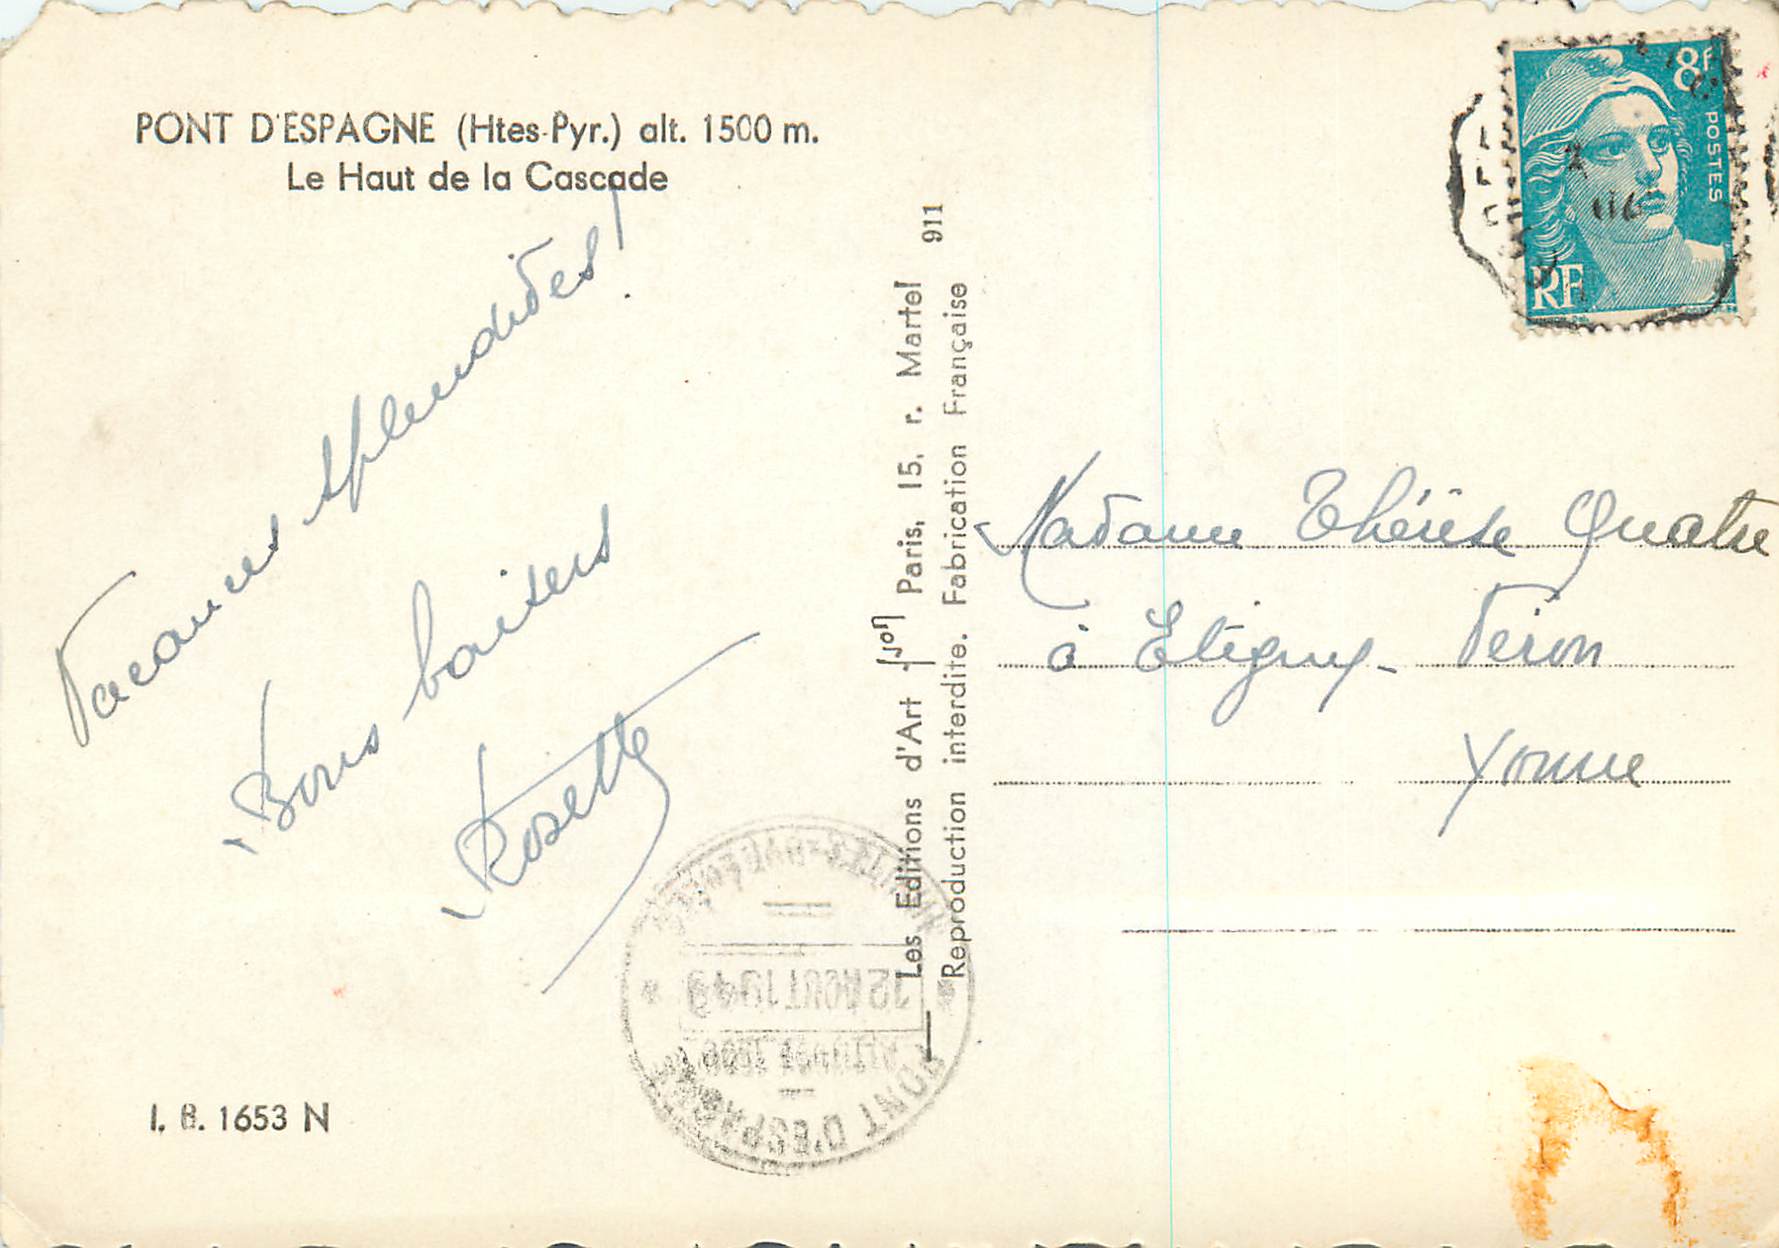 PONT D'ESPAGNE (Htes-Pyr.) alt. 1500 m.
Le Haut de la Cascade
Vacances splendides !
Bons baisers
Rosette
I. B. 1653 N
Les Editions d'Art Yvon Paris, 15, r. Martel 911
Reproduction interdite. Fabrication Française
8F
POSTES
RF
Madame Thérèse Quatre
à Etigny- Véron
Yonne
HAUTES-PYRÉNÉES
12 AOUT 1949
ALTITUDE 1500
PONT D'ESPAGNE